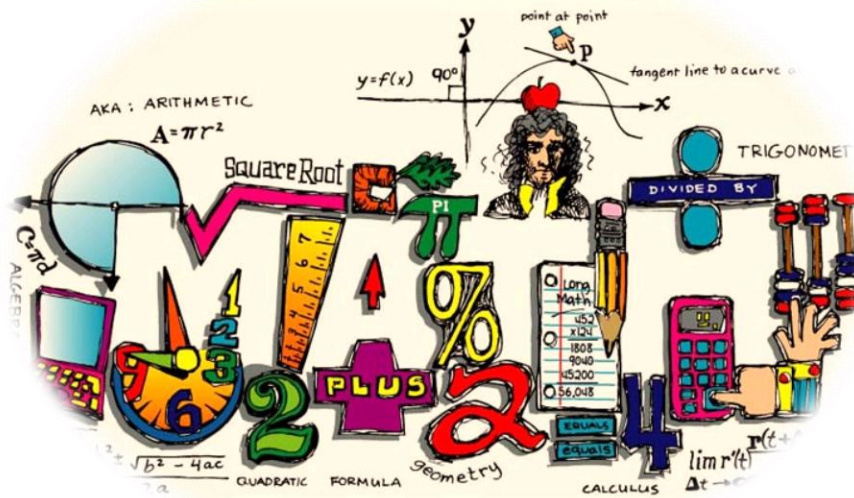 point at point
y
P
y=f(x)
90°
tangent line to a curve
x
AKA: ARITHMETIC
A=πr²
Square Root
TRIGONOMET
PI
π
DIVIDED BY
C=πd
ALGEB
7
6
5
4
3
2
1
1
2
3
6
9
%
Long
Math
452
x124
1808
9040
45200
56,048
2
PLUS
2
EQUALS
equals
4
√b² - 4ac
2a
QUADRATIC FORMULA
geometry
CALCULUS
lim r'(t)
r(t+
Δt →